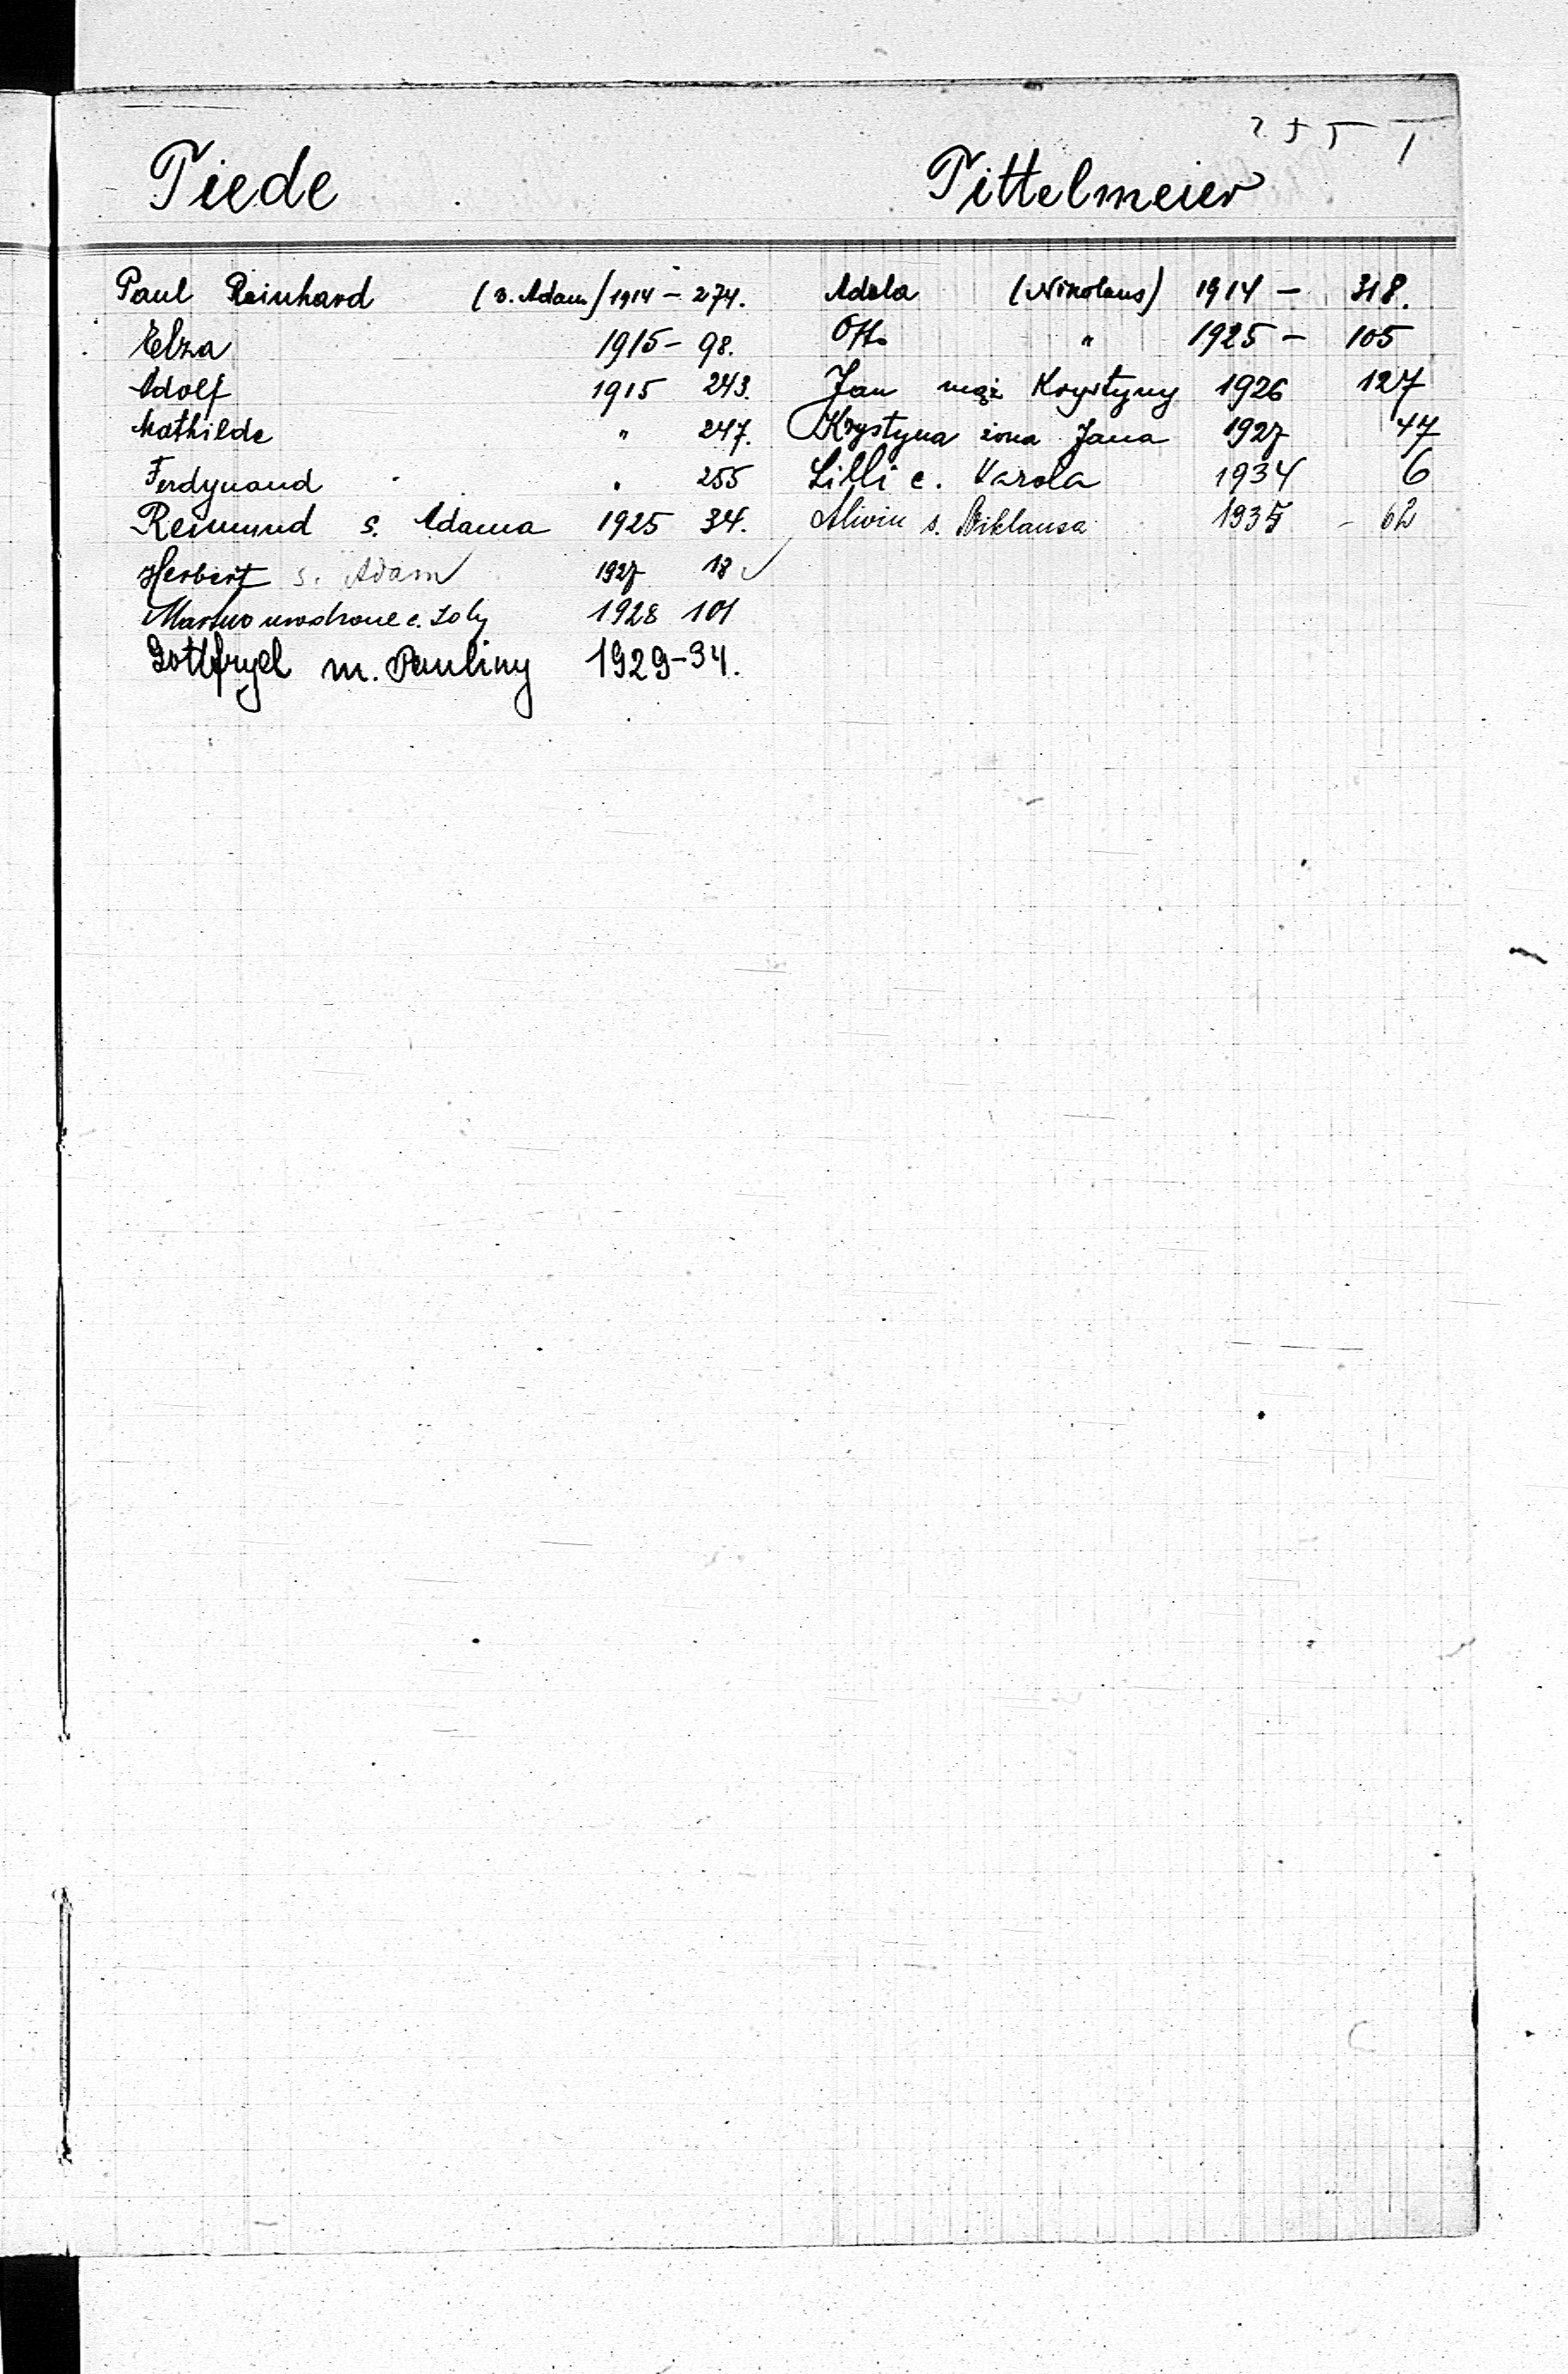 255
Tiede
Paul Reinhard (s. Adam) 1914 - 274.
Elza 1915 - 98.
Adolf 1915 243.
Mathilde " 247.
Ferdynand " 255
Reimund s. Adama 1925 34.
Herbert s. Adam 1927 18 ✓
Martwo urodzone c. 1928 101
Gottfryd m. Pauliny 1929-34.
Tittelmeier
Adela (Nikolaus) 1914 - 318.
Otto " 1925 - 105
Jan mąż Krystyny 1926 127
Krystyna żona Jana 1927 47
Lilli c. Karola 1934 6
Alwin s. Niklausa 1935 - 62